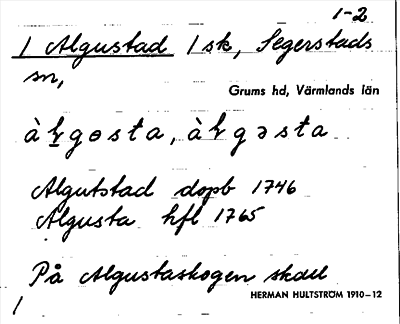 1-2
1 Algustad 1 sk, Segerstads
sn,
Grums hd, Värmlands län
àl̥gɵsta, àl̥gəsta
Algutstad dopb 1746
Algusta hfl 1765
På Algustaskogen skall
HERMAN HULTSTRÖM 1910-12
/